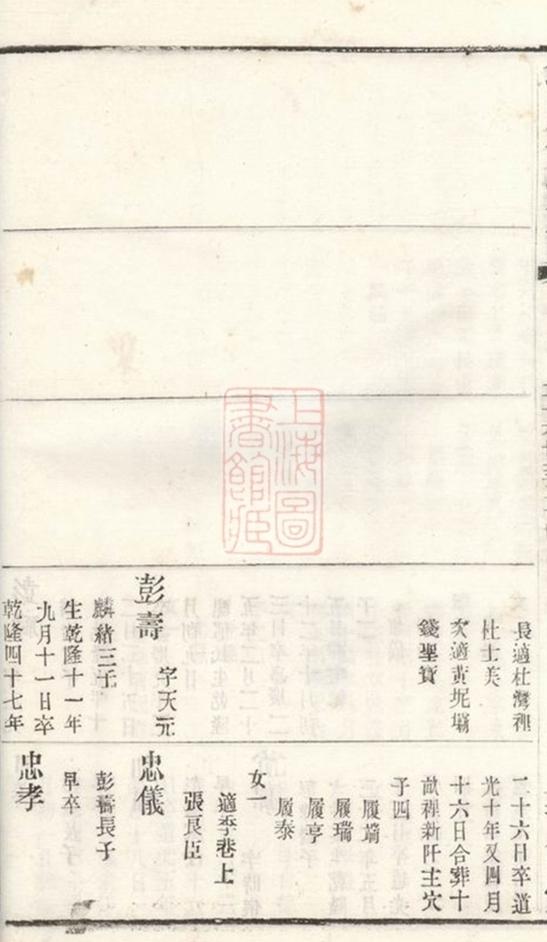 長適杜灣裡
杜士美
次適黃坭墈
錢聖寶
彭壽 字天元
麟緒三子
生乾隆十一年
九月十一日卒
乾隆四十七年
二十六日卒道
光十年又四月
十六日合葬十
畝裡新阡主穴
子四
履端
履瑞
履亨
履泰
女一
適李巷上
張良臣
忠儀
彭壽長子
早卒
忠孝
上海圖
書館藏